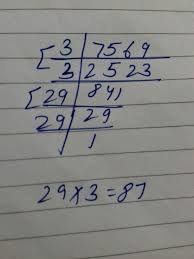 [ 3 | 7569
3 | 2523
[ 29 | 841
29 | 29
1
29 × 3 = 87